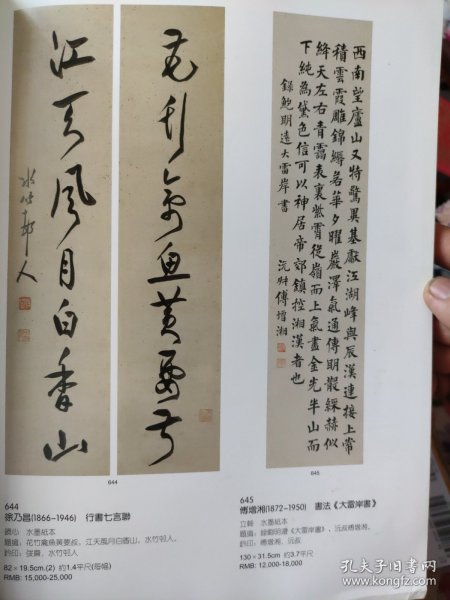 花竹禽魚黃要叔
江天風月白香山
水竹邨人
644
西南望廬山又特驚異基壓江湖峰與辰漢連接上常
積雲霞雕錦縟若華夕曜巖澤氣通傳明散綵赫似
絳天左右青靄表裏紫霄從嶺而上氣盡金光半山而
下純為黛色信可以神居帝郊鎮控湘漢者也
錄鮑明遠大雷岸書
沅叔傅增湘
645
644
徐乃昌(1866-1946) 行書七言聯
鏡心 水墨紙本
題識：花竹禽魚黃要叔，江天風月白香山。水竹邨人。
鈐印：弢齋、水竹邨人
82 × 19.5cm.(2) 約1.4平尺(每幅)
RMB: 15,000-25,000
645
傅增湘(1872-1950) 書法《大雷岸書》
立軸 水墨紙本
題識：錄鮑明遠《大雷岸書》，沅叔傅增湘。
鈐印：傅增湘、沅叔
130 × 31.5cm 約3.7平尺
RMB: 12,000-18,000
孔夫子旧书网